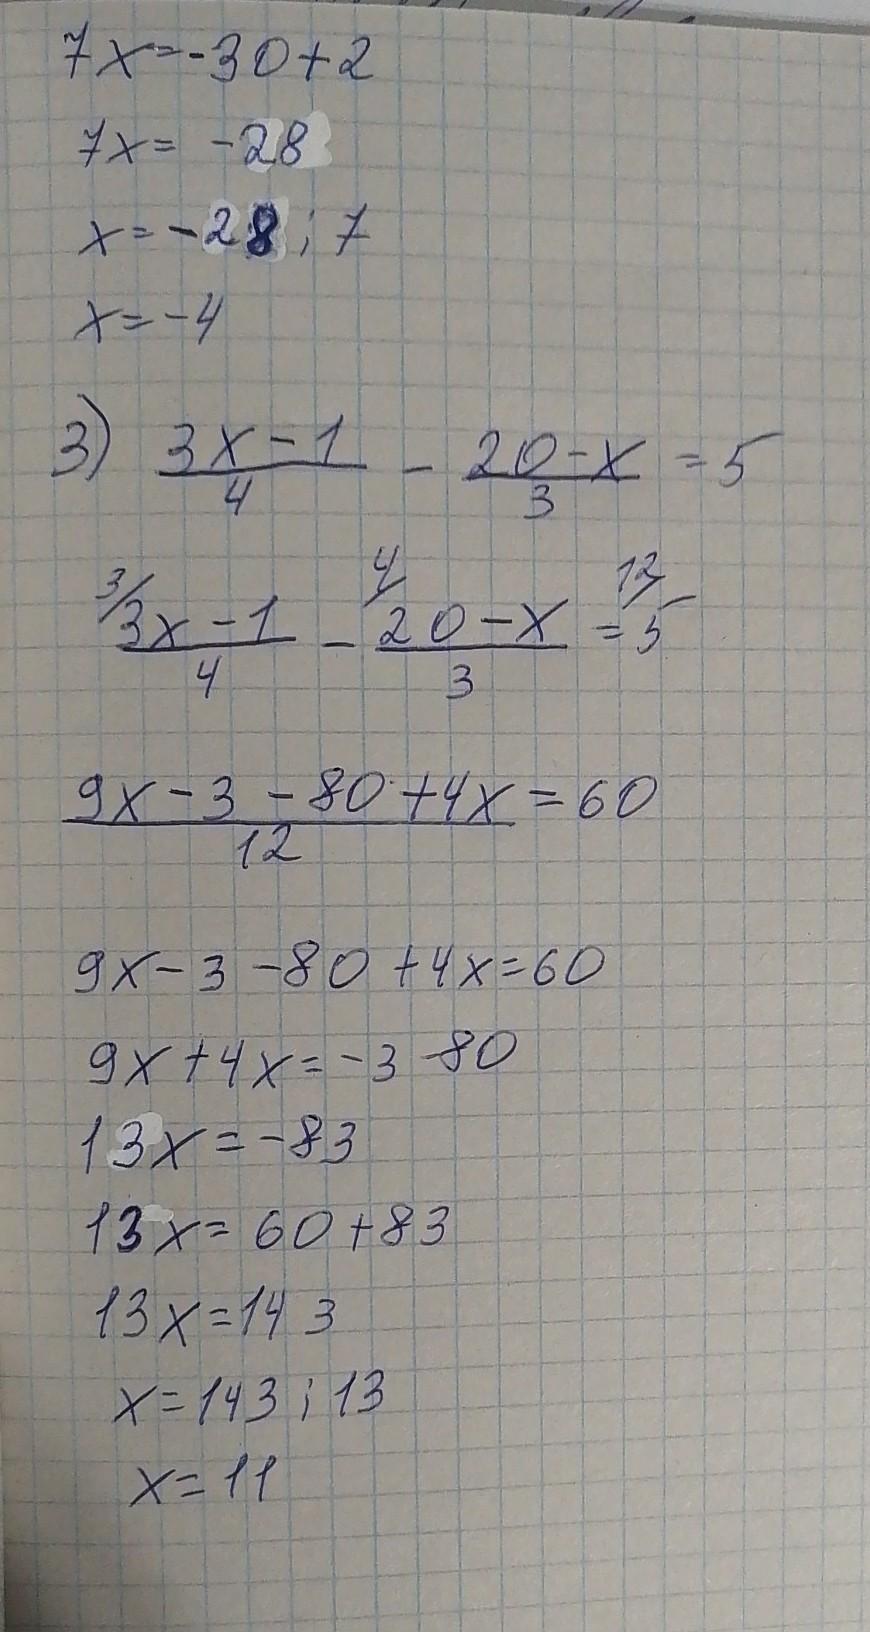 7x=-30+2
7x= -28
x=-28:7
x=-4
3) 3x-1/4 - 20-x/3 =5
3/ 3x-1/4 - 4/ 20-x/3 = 12/ 5
9x-3-80+4x/12 =60
9x-3-80+4x=60
9x+4x=-3-80
13x=-83
13x=60+83
13x=143
x=143:13
x=11